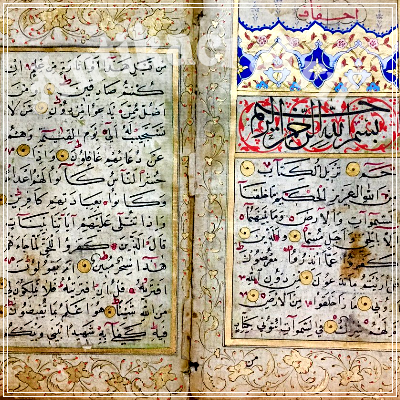 احقاف
بسم الله الرحمن الرحيم
حم تنزيل الكتاب
من الله العزيز الحكيم ما خلقنا
السموات والارض وما بينهما
الا بالحق واجل مسمى والذين
عما انذروا معرضون
تدعون من دون الله
اروني ماذا خلقوا من الارض
شرك في السموات ايتوني بكتاب
من
من قبل هذا او اثارة من علم ان
كنتم صادقين ومن
اضل ممن يدعوا من دون الله من لا
يستجيب له الى يوم القيمة وهم
عن دعائهم غافلون واذا
حشر الناس كانوا لهم اعداء
وكانوا بعبادتهم كافرين
واذا تتلى عليهم آياتنا بينات
قال الذين كفروا للحق لما جاءهم
هذا سحر مبين ام يقولون
افتريه قل ان افتريته فلا تملكون لي
من الله شيئا هو اعلم بما تفيضون
فيه كفى به شهيدا بيني وبينكم